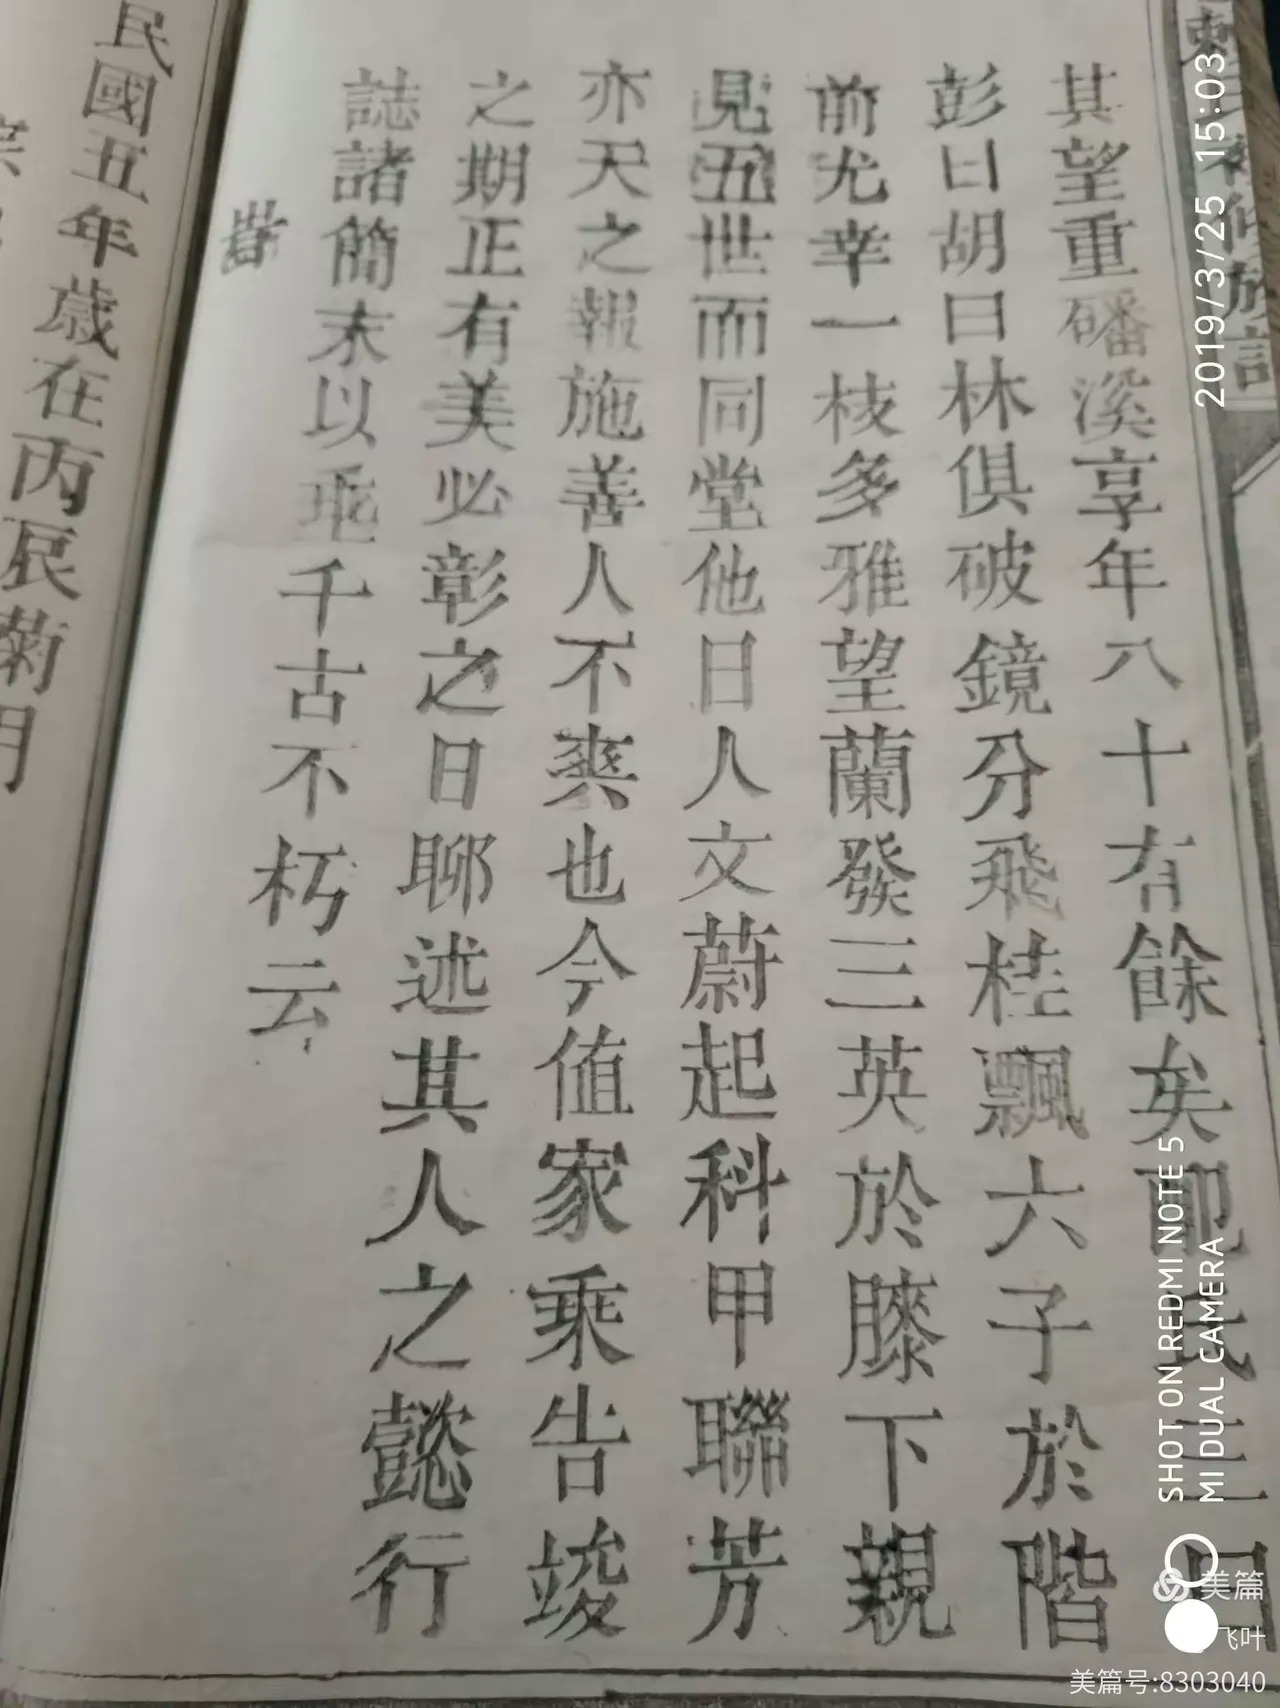 其望重磻溪享年八十有餘矣配氏三曰
彭曰胡曰林俱破鏡分飛桂飄六子於階
前尤幸一枝多雅望蘭發三英於膝下親
見五世而同堂他日人文蔚起科甲聯芳
亦天之報施善人不爽也今值家乘告竣
之期正有美必彰之日聊述其人之懿行
誌諸簡末以垂千古不朽云
民國五年歲在丙辰菊月
2019/3/25 15:03
SHOT ON REDMI NOTE 5
MI DUAL CAMERA
美篇
飞叶
美篇号:8303040